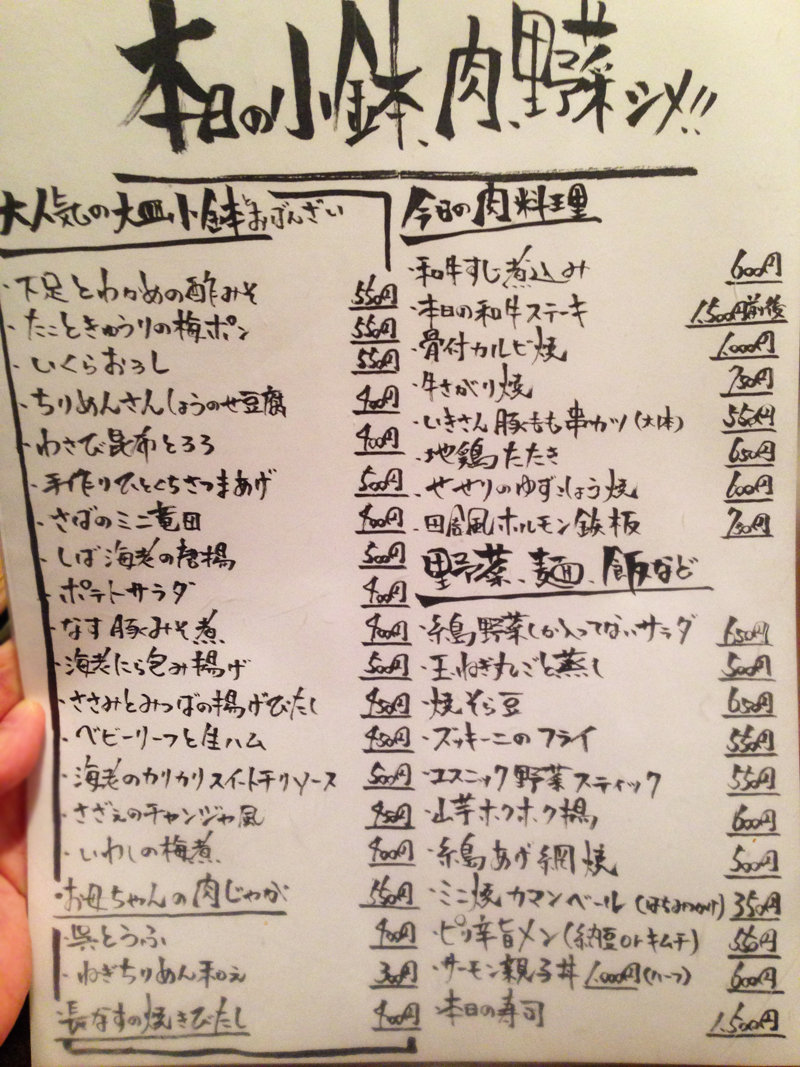 本日の小鉢、肉、野菜、シメ!!
大人気の大皿小鉢とおばんざい
・下足とわかめの酢みそ 550円
・たこときゅうりの梅ポン 550円
・いくらおろし 550円
・ちりめんさんしょうのせ豆腐 400円
・わさび昆布とろろ 400円
・手作りひとくちさつまあげ 500円
・さばのミニ竜田 400円
・しば海老の唐揚 500円
・ポテトサラダ 400円
・なす豚みそ煮 400円
・海老にら包み揚げ 500円
・ささみとみつばの揚げびたし 450円
・ベビーリーフと生ハム 450円
・海老のカリカリスイートチリソース 500円
・さざえのチャンジャ風 450円
・いわしの梅煮 400円
・お母ちゃんの肉じゃが 550円
・呉とうふ 400円
・ねぎちりめん和え 300円
・長なすの焼きびたし 400円
今日の肉料理
・和牛すじ煮込み 600円
・本日の和牛ステーキ 1,500円前後
・骨付カルビ焼 1,000円
・牛さがり焼 750円
・いきさん豚もも串カツ(大1本) 550円
・地鶏たたき 650円
・せせりのゆずこしょう焼 600円
・田舎風ホルモン鉄板 750円
野菜、麺、飯など
・糸島野菜しか入ってないサラダ 650円
・玉ねぎ丸ごと蒸し 500円
・焼そら豆 650円
・ズッキーニのフライ 550円
・エスニック野菜スティック 550円
・山芋ホクホク揚 600円
・糸島あげ網焼 500円
・ミニ焼カマンベール(はちみつかけ) 350円
・ピリ辛旨メン(納豆orキムチ) 550円
・サーモン親子丼 1,000円(ハーフ) 600円
・本日の寿司 1,500円